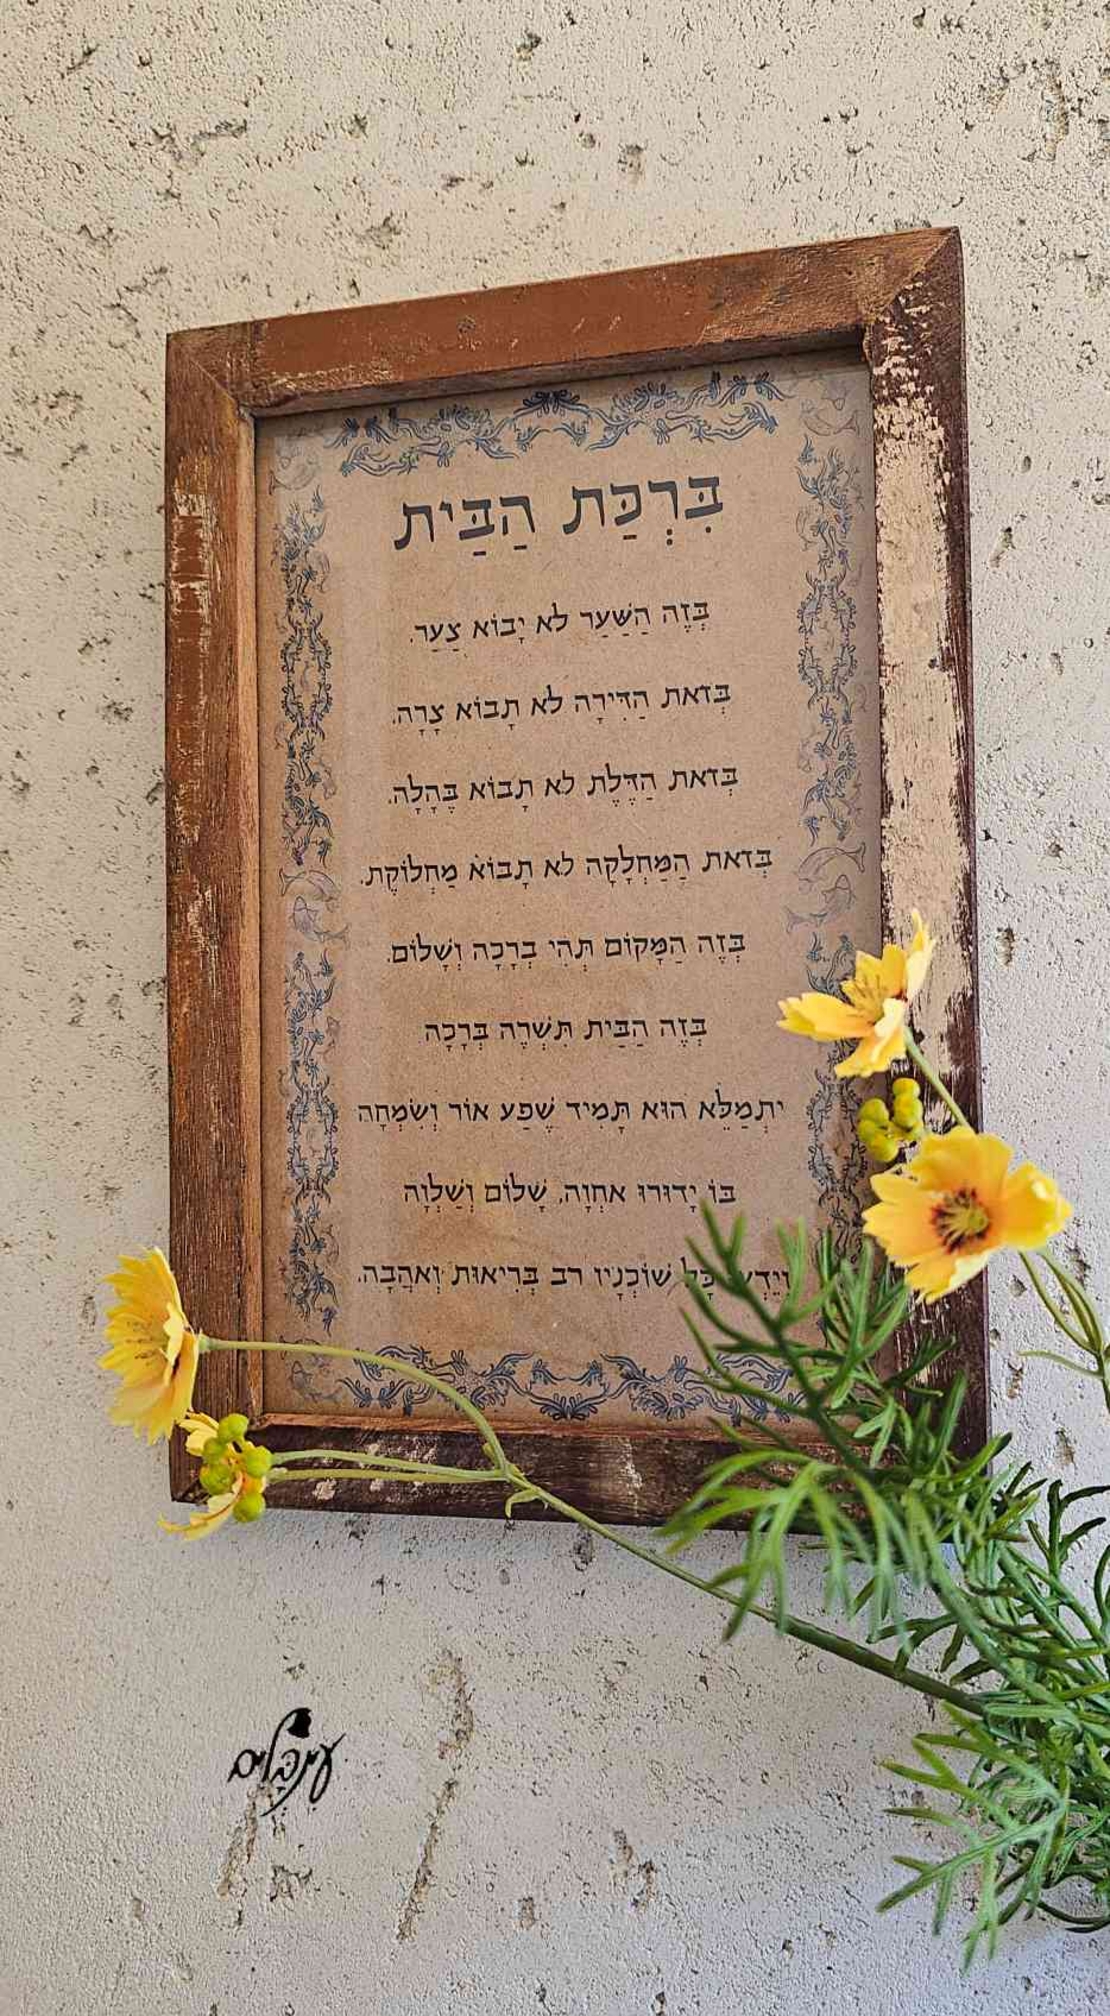 בִּרְכַּת הַבַּיִת
בְּזֶה הַשַּׁעַר לֹא יָבוֹא צַעַר.
בְּזֹאת הַדִּירָה לֹא תָבוֹא צָרָה.
בְּזֹאת הַדֶּלֶת לֹא תָבוֹא בֶּהָלָה.
בְּזֹאת הַמַּחְלָקָה לֹא תָבוֹא מַחְלוֹקֶת.
בְּזֶה הַמָּקוֹם תְּהִי בְרָכָה וְשָׁלוֹם.
בְּזֶה הַבַּיִת תִּשְׁרֶה בְּרָכָה
יִתְמַלֵּא הוּא תָּמִיד שֶׁפַע אוֹר וְשִׂמְחָה
בּוֹ יָדוּרוּ אַחְוָה, שָׁלוֹם וְשַׁלְוָה
כָּל שׁוֹכְנָיו רב בְּרִיאוּת וְאַהֲבָה.